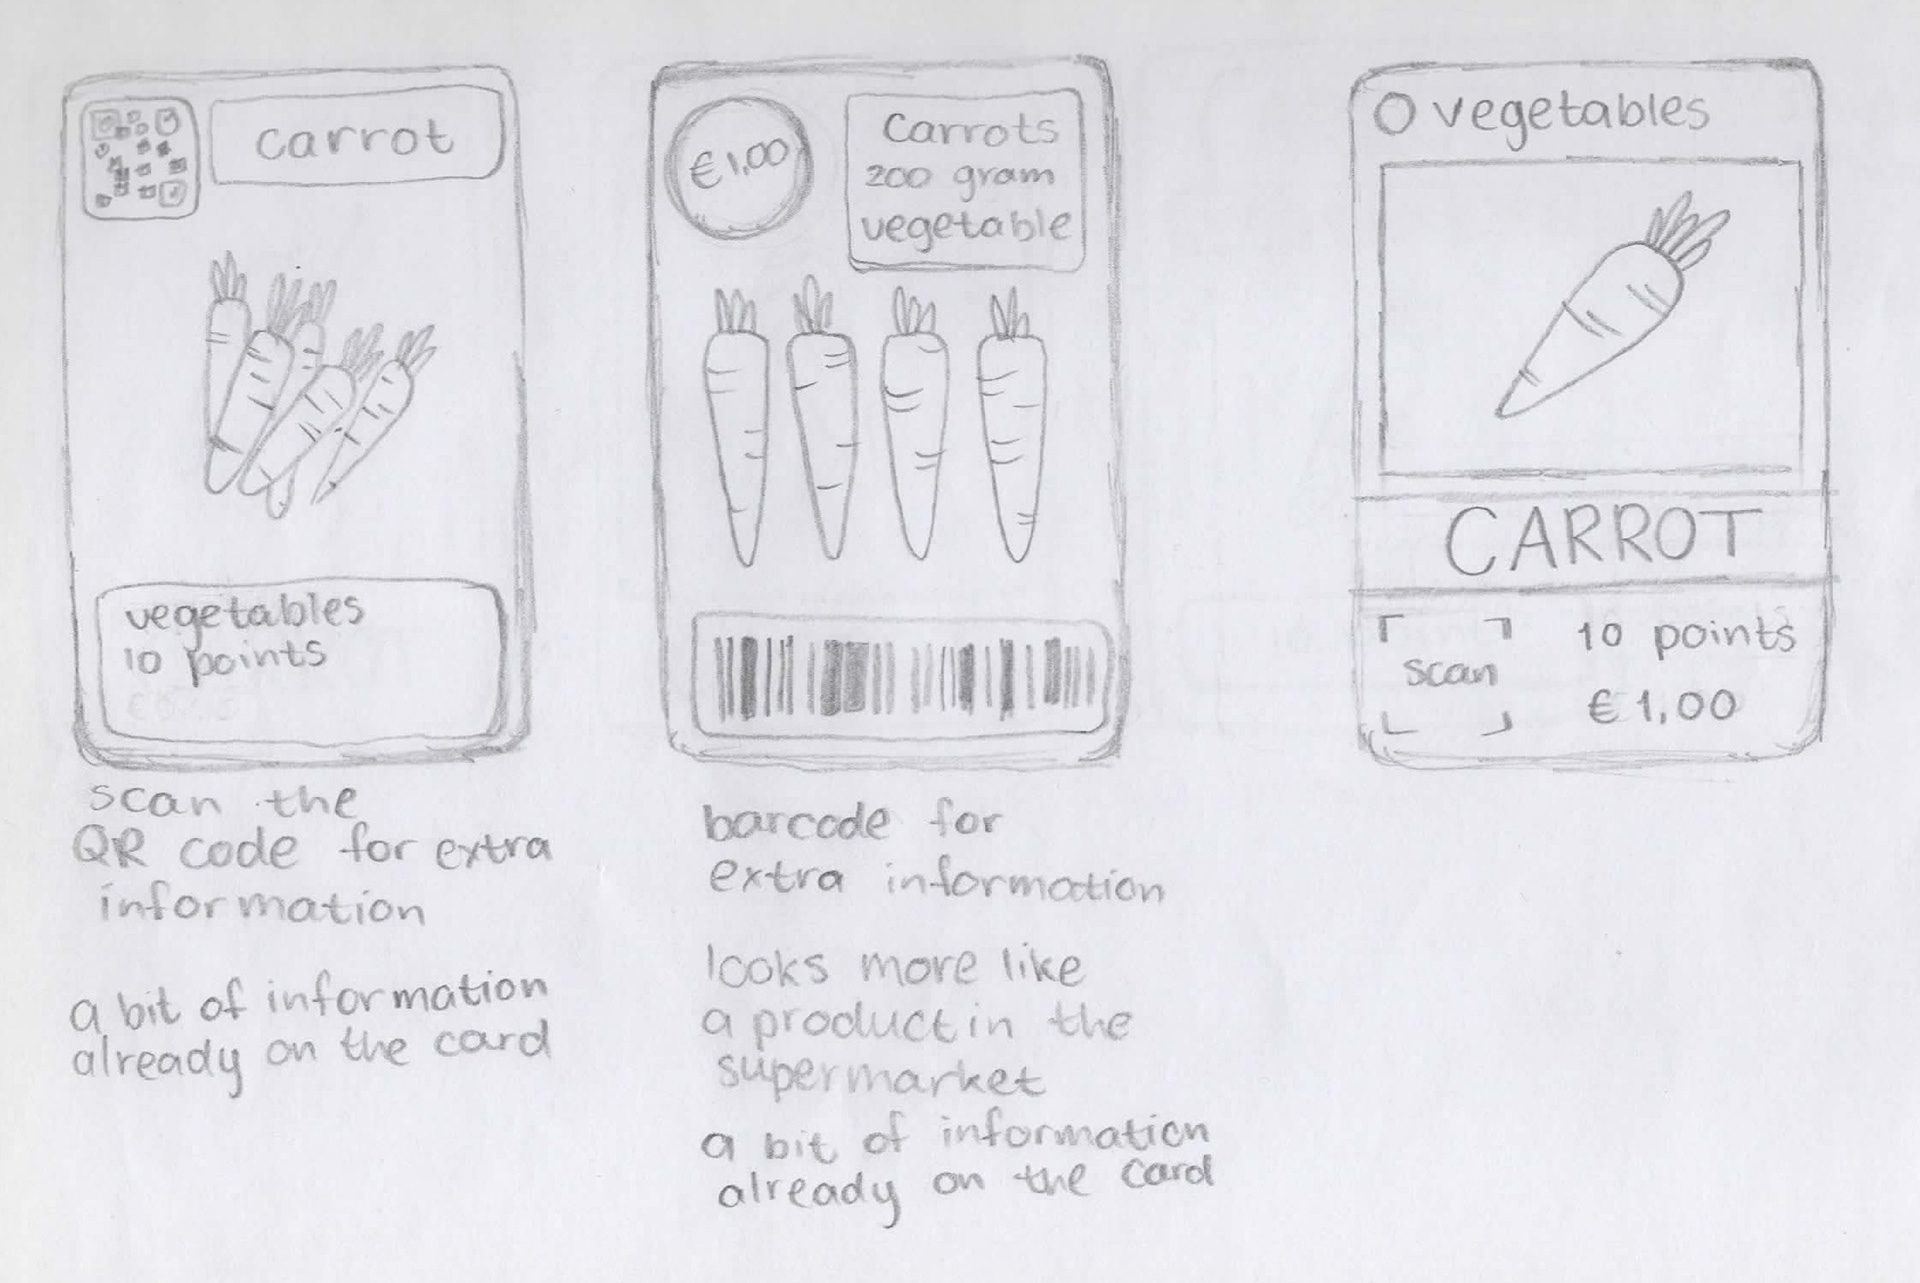 carrot
vegetables
10 points
scan the
QR code for extra
information
a bit of information
already on the card
€ 1,00
Carrots
200 gram
vegetable
barcode for
extra information
looks more like
a product in the
supermarket
a bit of information
already on the card
O vegetables
CARROT
scan
10 points
€ 1,00